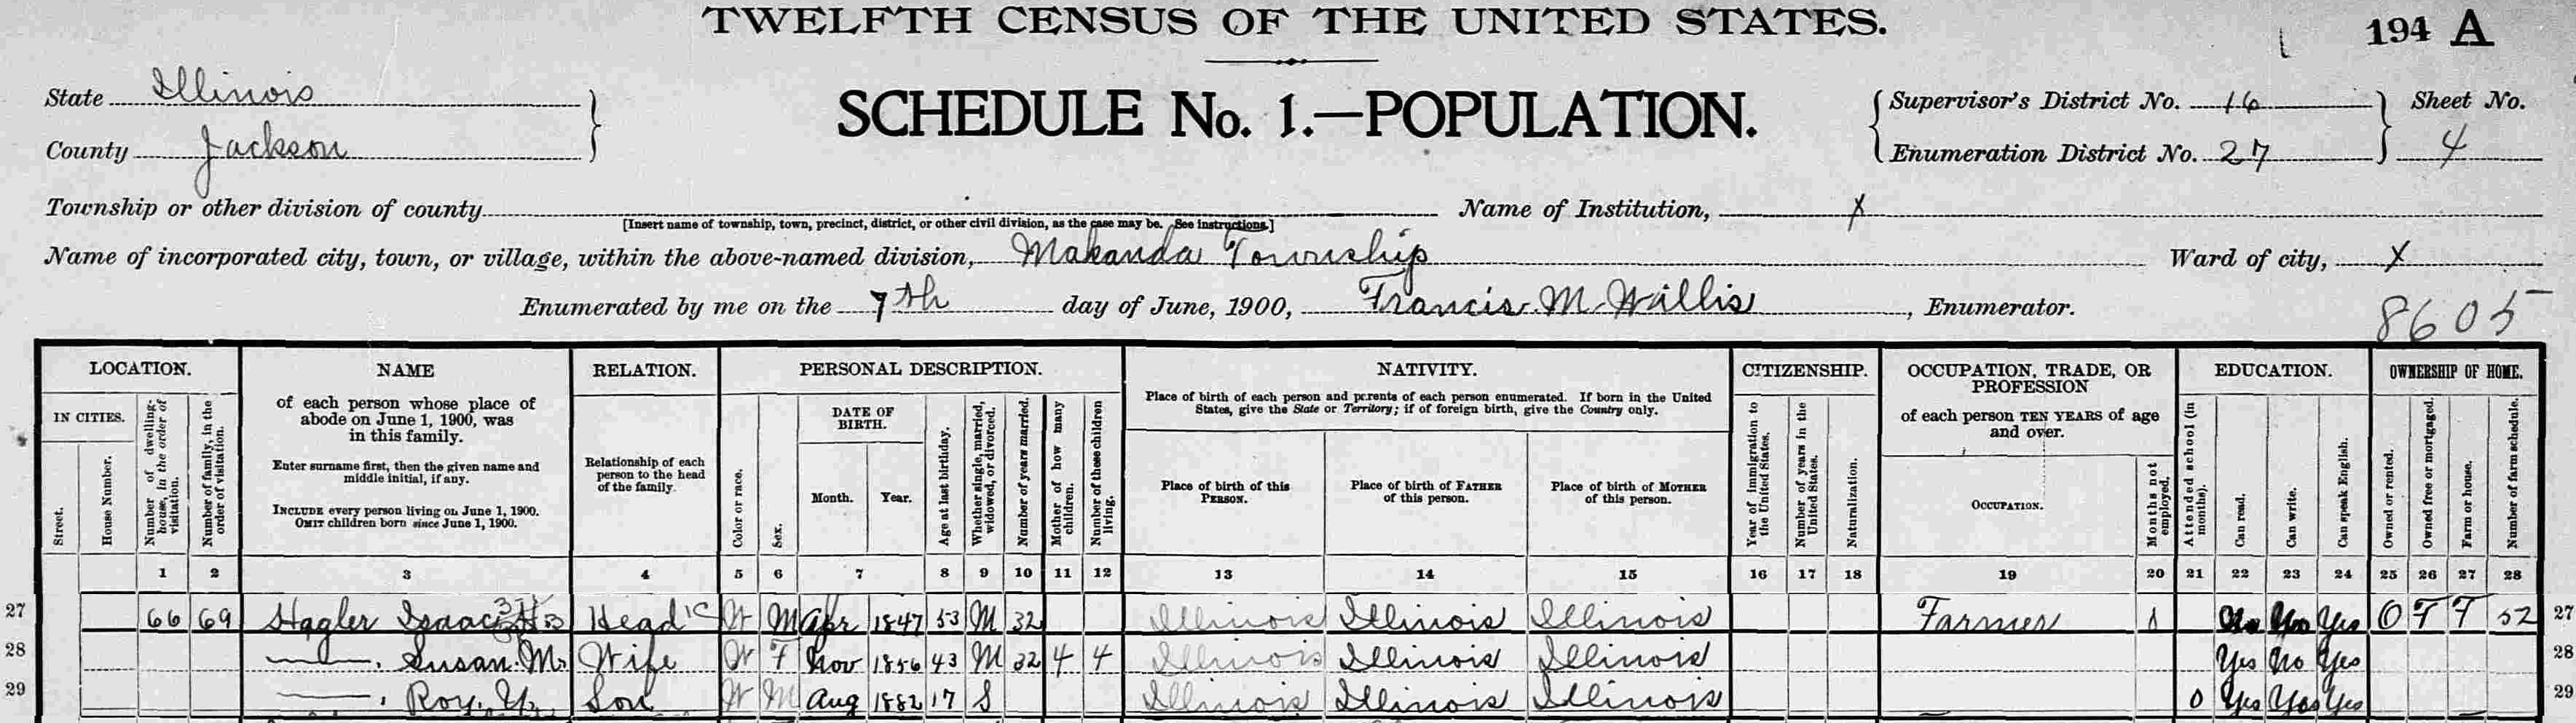 TWELFTH CENSUS OF THE UNITED STATES.
194 A
State Illinois
SCHEDULE No. 1.—POPULATION.
Supervisor's District No. 16
Sheet No.
County Jackson
Enumeration District No. 27
4
Township or other division of county
Name of Institution, X
[Insert name of township, town, precinct, district, or other civil division, as the case may be. See instructions.]
Name of incorporated city, town, or village, within the above-named division, Makanda Township
Ward of city, X
Enumerated by me on the 7th day of June, 1900, Francis M Willis, Enumerator.
8605
LOCATION. NAME RELATION. PERSONAL DESCRIPTION. NATIVITY. CITIZENSHIP. OCCUPATION, TRADE, OR PROFESSION EDUCATION. OWNERSHIP OF HOME.
IN CITIES.
Street.
House Number.
Number of dwelling-house, in the order of visitation.
Number of family, in the order of visitation.
of each person whose place of abode on June 1, 1900, was in this family.
Enter surname first, then the given name and middle initial, if any.
INCLUDE every person living on June 1, 1900.
OMIT children born since June 1, 1900.
Relationship of each person to the head of the family.
Color or race.
Sex.
DATE OF BIRTH.
Month.
Year.
Age at last birthday.
Whether single, married, widowed, or divorced.
Number of years married.
Mother of how many children.
Number of these children living.
Place of birth of each person and parents of each person enumerated. If born in the United States, give the State or Territory; if of foreign birth, give the Country only.
Place of birth of this PERSON.
Place of birth of FATHER of this person.
Place of birth of MOTHER of this person.
Year of immigration to the United States.
Number of years in the United States.
Naturalization.
of each person TEN YEARS of age and over.
OCCUPATION.
Months not employed.
Attended school (in months).
Can read.
Can write.
Can speak English.
Owned or rented.
Owned free or mortgaged.
Farm or house.
Number of farm schedule.
1 2 3 4 5 6 7 8 9 10 11 12 13 14 15 16 17 18 19 20 21 22 23 24 25 26 27 28
27 66 69 Hagler Isaac Head W M Apr 1847 53 M 32 Illinois Illinois Illinois Farmer 0 Yes O F F 52 27
28 —, Susan M. Wife W F Nov 1856 43 M 32 4 4 Illinois Illinois Illinois Yes No Yes 28
29 —, Roy. Y. Son W M Aug 1882 17 S Illinois Illinois Illinois 0 Yes Yes Yes 29